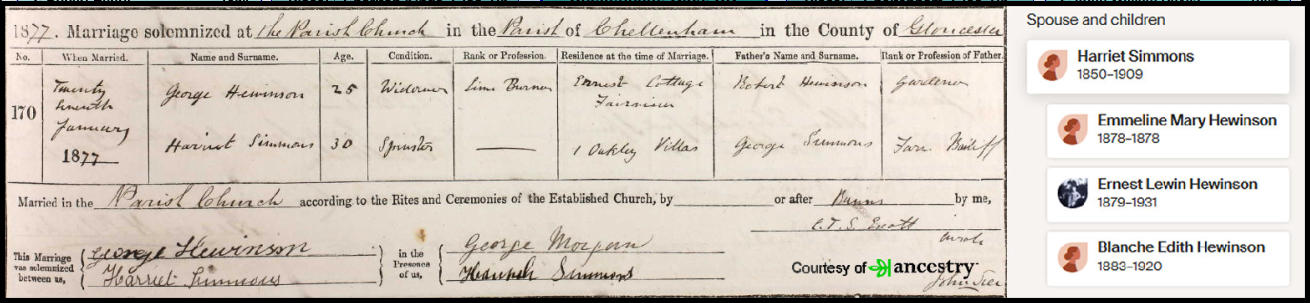 1877. Marriage solemnized at the Parish Church in the Parish of Cheltenham in the County of Gloucester
No. When Married. Name and Surname. Age. Condition. Rank or Profession. Residence at the time of Marriage. Father's Name and Surname. Rank or Profession of Father.
170
Twenty seventh January 1877
George Hewinson 25 Widower Lime Burner Ernest Cottage Robert Hewinson Gardener
Harriet Simmons 30 Spinster 1 Oakley Villas George Simmons Farm Bailiff
Married in the Parish Church according to the Rites and Ceremonies of the Established Church, by or after Banns by me,
C. T. S. Scott
Curate
This Marriage was solemnized between us,
George Hewinson
Harriet Simmons
in the Presence of us,
George Morgan
Hannah Simmons
Courtesy of ancestry
Spouse and children
Harriet Simmons
1850–1909
Emmeline Mary Hewinson
1878–1878
Ernest Lewin Hewinson
1879–1931
Blanche Edith Hewinson
1883–1920